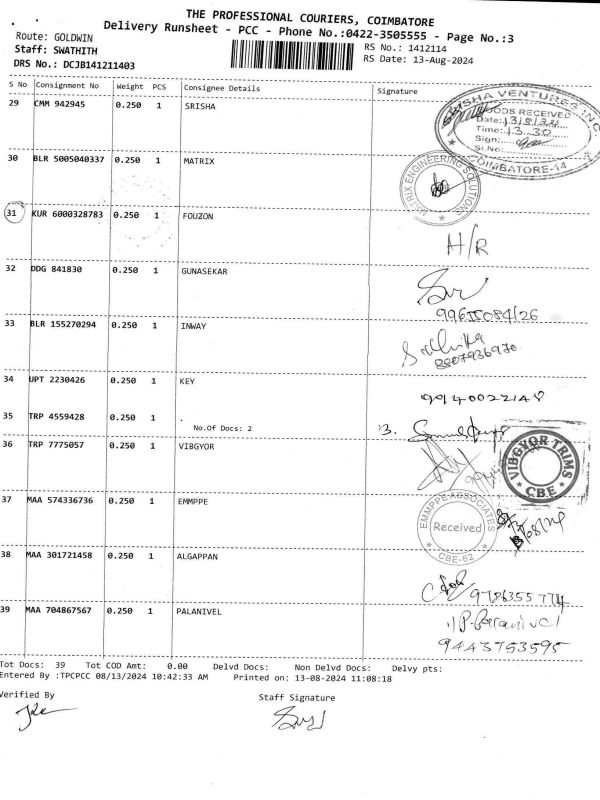 THE PROFESSIONAL COURIERS, COIMBATORE
Delivery Runsheet - PCC - Phone No.:0422-3505555 - Page No.:3
Route: GOLDWIN
Staff: SWATHITH
DRS No.: DCJB141211403
RS No.: 1412114
RS Date: 13-Aug-2024
S No Consignment No Weight PCS Consignee Details Signature
29 CMM 942945 0.250 1 SRISHA
SRISHA VENTURES INC.
GOODS RECEIVED
Date: 13/8/24
Time: 13.30
Sign:
Sl.No
COIMBATORE-14
30 BLR 5005040337 0.250 1 MATRIX
MATRIX ENGINEERING SOLUTIONS
31 KUR 6000328783 0.250 1 FOUZON
H/R
32 DDG 841830 0.250 1 GUNASEKAR
33 BLR 155270294 0.250 1 INWAY
8807936970
34 UPT 2230426 0.250 1 KEY
35 TRP 4559428 0.250 1 .
No.Of Docs: 2
36 TRP 7775057 0.250 1 VIBGYOR
VIBGYOR TRIMS
CBE
37 MAA 574336736 0.250 1 EMMPPE
EMMPPE ASSOCIATES
Received
CBE-62
38 MAA 301721458 0.250 1 ALGAPPAN
9786355774
39 MAA 704867567 0.250 1 PALANIVEL
P. Palanivel
9443753595
Tot Docs: 39 Tot COD Amt: 0.00 Delvd Docs: Non Delvd Docs: Delvy pts:
Entered By :TPCPCC 08/13/2024 10:42:33 AM Printed on: 13-08-2024 11:08:18
Verified By
Staff Signature